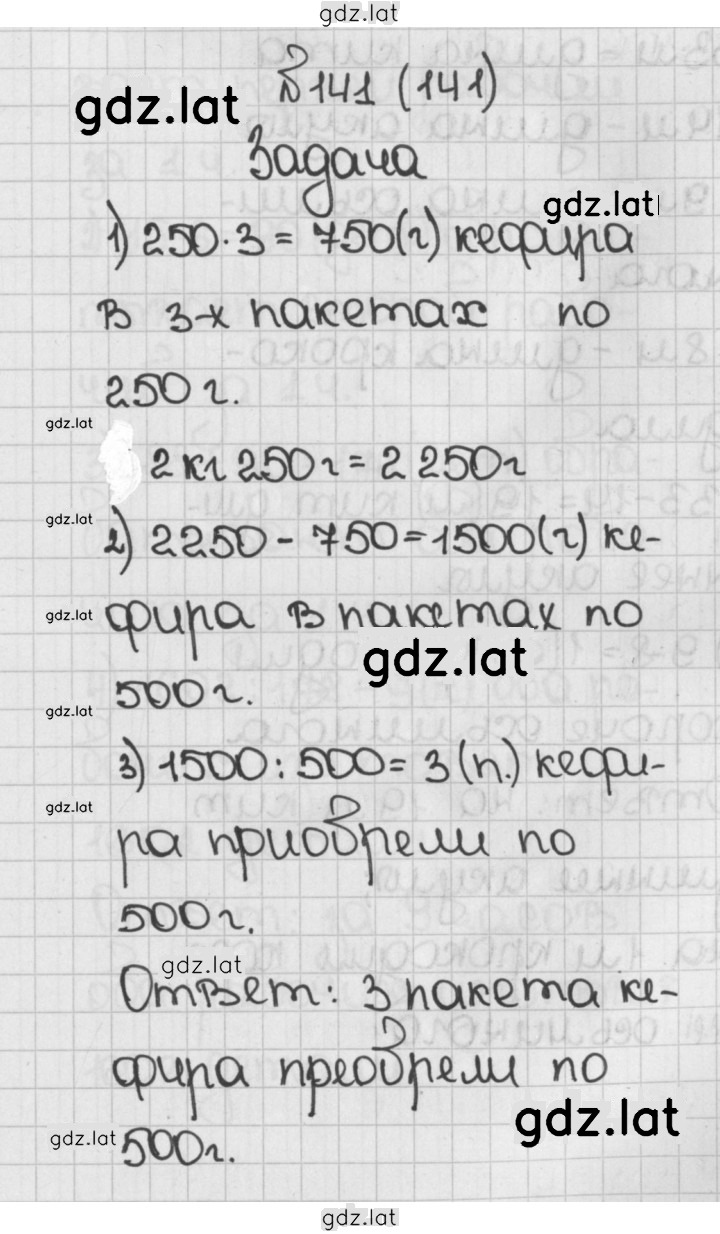 gdz.lat
№141 (141)
gdz.lat
Задача
gdz.lat
1) 250·3 = 750(г) кефира
в 3-х пакетах по
250 г.
gdz.lat
2 кг 250 г = 2 250 г
gdz.lat
2) 2250 - 750 = 1500(г) ке-
gdz.lat
фира в пакетах по
gdz.lat
500 г.
gdz.lat
3) 1500 : 500 = 3 (п.) кефи-
gdz.lat
ра приобрели по
500 г.
gdz.lat
Ответ: 3 пакета ке-
фира преобрели по
gdz.lat
gdz.lat
500 г.
gdz.lat